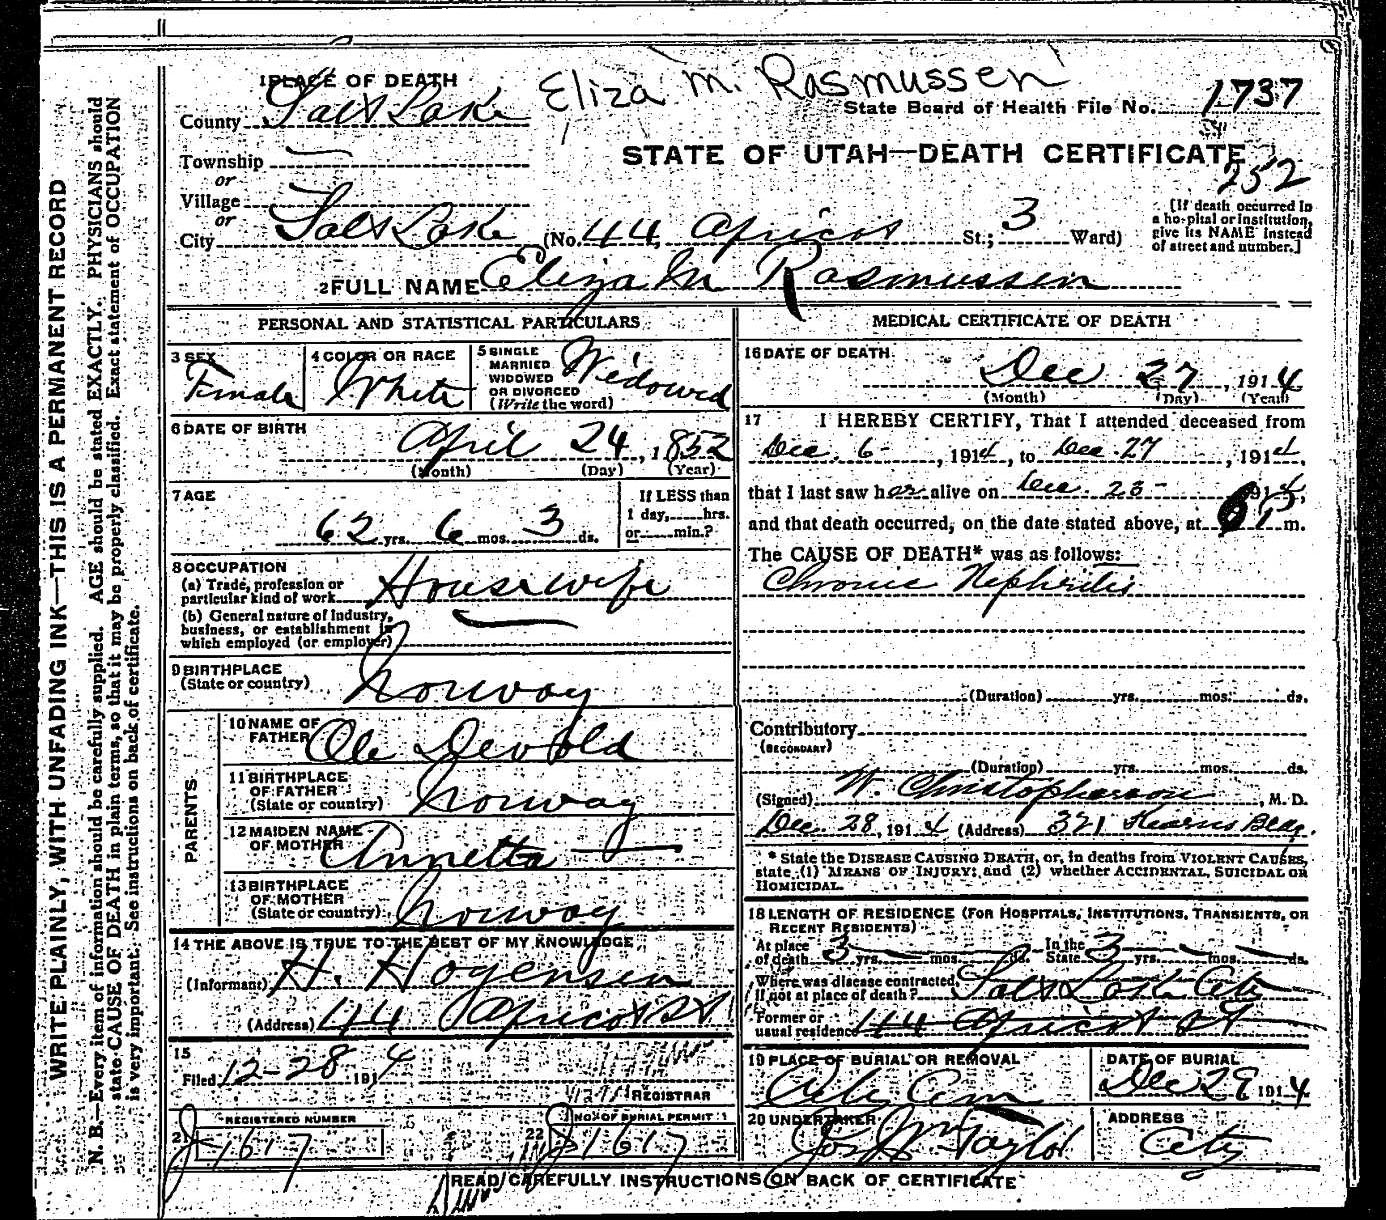 WRITE PLAINLY, WITH UNFADING INK—THIS IS A PERMANENT RECORD
N. B.—Every item of information should be carefully supplied. AGE should be stated EXACTLY. PHYSICIANS should
state CAUSE OF DEATH in plain terms, so that it may be properly classified. Exact statement of OCCUPATION
is very important. See instructions on back of certificate.
Eliza M. Rasmussen
1 PLACE OF DEATH
County Salt Lake
State Board of Health File No. 1737
Township
or
Village
or
City Salt Lake (No. 44 Apricot St.; 3 Ward)
STATE OF UTAH—DEATH CERTIFICATE
252
[If death occurred in
a hospital or institution,
give its NAME instead
of street and number.]
2 FULL NAME Eliza M Rasmussen
PERSONAL AND STATISTICAL PARTICULARS
3 SEX
Female
4 COLOR OR RACE
White
5 SINGLE
MARRIED
WIDOWED
OR DIVORCED
(Write the word)
Widowed
6 DATE OF BIRTH
April 24, 1852
(Month) (Day) (Year)
7 AGE
62 yrs. 6 mos. 3 ds.
If LESS than
1 day, hrs.
or min.?
8 OCCUPATION
(a) Trade, profession or
particular kind of work Housewife
(b) General nature of industry,
business, or establishment in
which employed (or employer)
9 BIRTHPLACE
(State or country) Norway
PARENTS
10 NAME OF
FATHER Ole Devold
11 BIRTHPLACE
OF FATHER
(State or country) Norway
12 MAIDEN NAME
OF MOTHER Annetta
13 BIRTHPLACE
OF MOTHER
(State or country) Norway
14 THE ABOVE IS TRUE TO THE BEST OF MY KNOWLEDGE
(Informant) H. Hogensen
(Address) 44 Apricot St
15
Filed 12-28 1914
REGISTRAR
REGISTERED NUMBER
21 J-1617
NO. OF BURIAL PERMIT
22 J1617
MEDICAL CERTIFICATE OF DEATH
16 DATE OF DEATH
Dec 27, 1914
(Month) (Day) (Year)
17 I HEREBY CERTIFY, That I attended deceased from
Dec. 6-, 1914, to Dec. 27, 1914,
that I last saw her alive on Dec. 23- 1914,
and that death occurred, on the date stated above, at m.
The CAUSE OF DEATH* was as follows:
Chronic Nephritis
(Duration) yrs. mos. ds.
Contributory
(SECONDARY)
(Duration) yrs. mos. ds.
(Signed) W. Christopherson, M. D.
Dec. 28, 1914 (Address) 321 Kearns Bldg.
* State the DISEASE CAUSING DEATH, or, in deaths from VIOLENT CAUSES,
state (1) MEANS OF INJURY; and (2) whether ACCIDENTAL, SUICIDAL OR
HOMICIDAL.
18 LENGTH OF RESIDENCE (FOR HOSPITALS, INSTITUTIONS, TRANSIENTS, OR
RECENT RESIDENTS)
At place
of death 3 yrs. mos. ds. In the
State 3 yrs. mos. ds.
Where was disease contracted,
if not at place of death? Salt Lake City
Former or
usual residence 44 Apricot St
19 PLACE OF BURIAL OR REMOVAL
City Cem
DATE OF BURIAL
Dec 29 1914
20 UNDERTAKER
Jos Wm Taylor
ADDRESS
City
READ CAREFULLY INSTRUCTIONS ON BACK OF CERTIFICATE